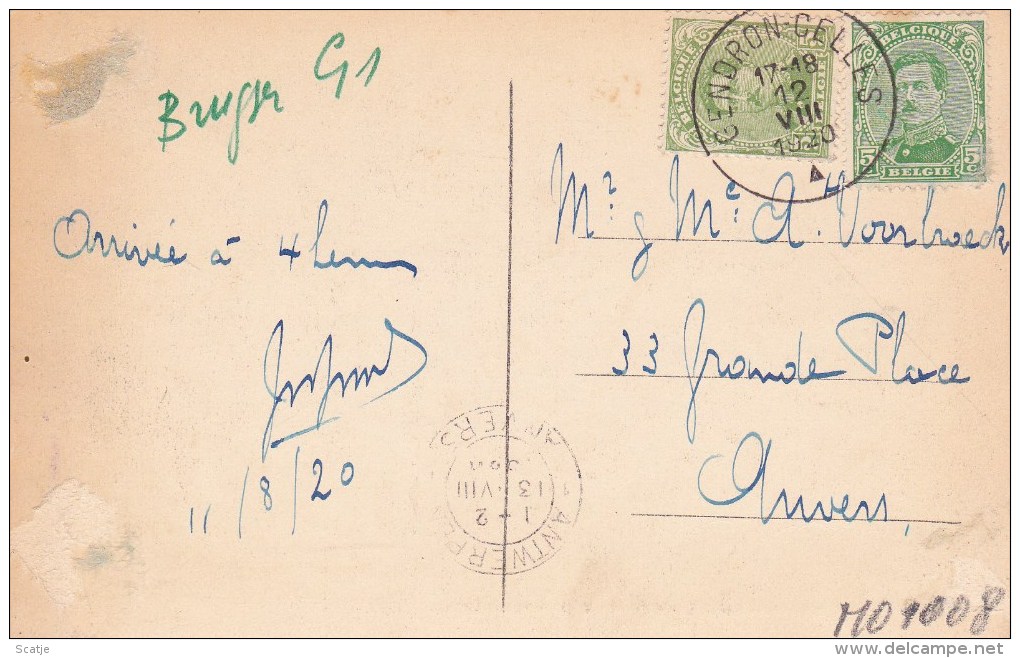 G1
Arrivée à 4 heures
11/8/20
GENDRON-CELLES
17-18
12
VIII
1920
BELGIQUE
5c 5c
BELGIE
Mr & Me A. Voorbroeck
33 Grande Place
Anvers,
ANVERS
13 VIII
1-2
1 ANTWERPEN
M01008
Scatje
www.delcampe.net